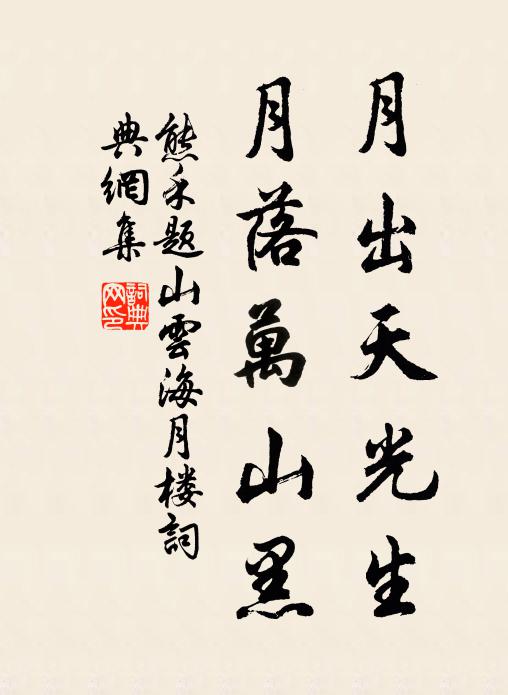 月出天光生
月落萬山黑
熊禾題山雲海月楼詞
典網集
詞典网印